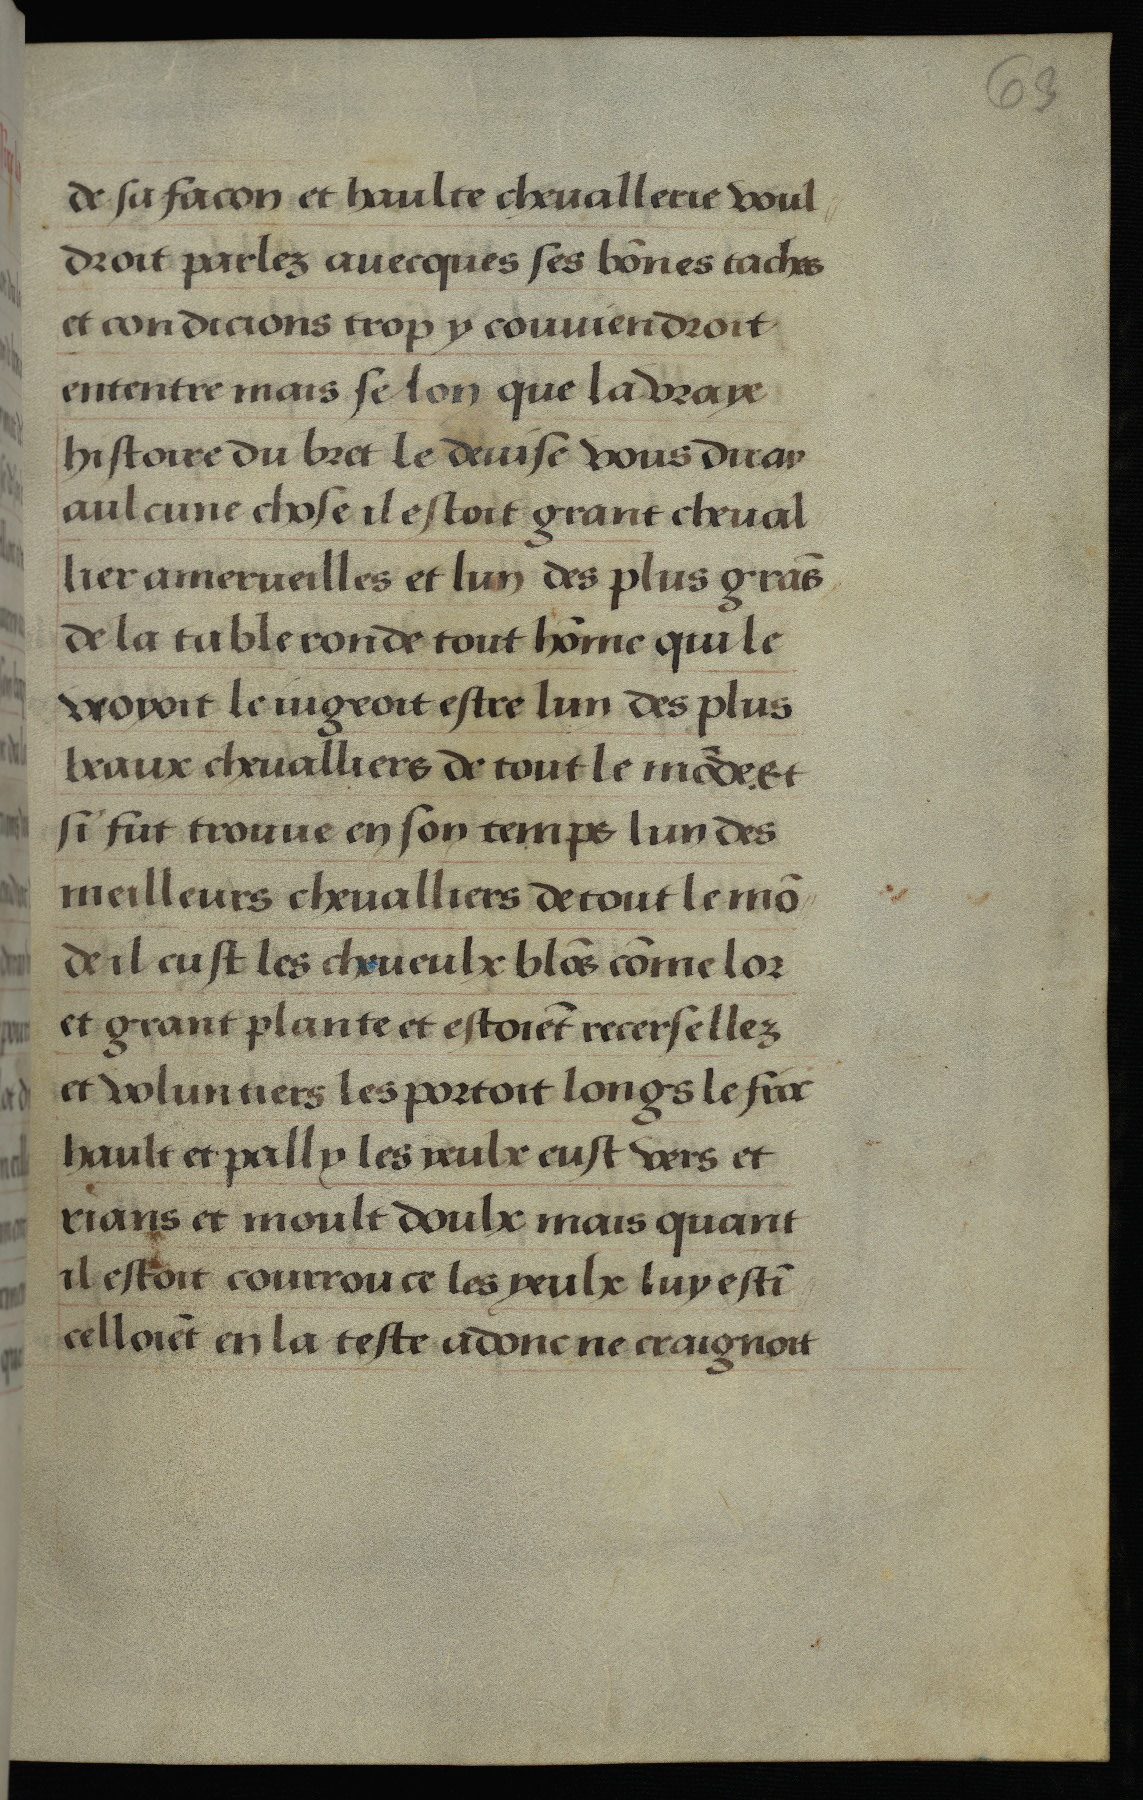 63
de sa facon et haulte cheuallerie voul〃
droit parlez auecques ses bõnes taches
et condicions trop y couuiendroit
ententre mais se lon que la vraye
histoire du bret le deuise vous diray
aulcune chose il estoit grant cheual
lier amerueilles et lun des plus grãs
de la table ronde tout hõme qui le
voyoit le iugeoit estre lun des plus
beaux cheualliers de tout le mõde. Et
si fut trouue en son temps lun des
meilleurs cheualliers de tout le mõ〃
de il eust les cheueulx blõs cõme lor
et grant plante et estoiẽt recersellez
et voluntiers les portoit longs le frõt
hault et pally les yeulx eust vers et
rians et moult doulx mais quant
il estoit courrouce les yeulx luy estĩ〃
celloiẽt en la teste adonc ne craignoit